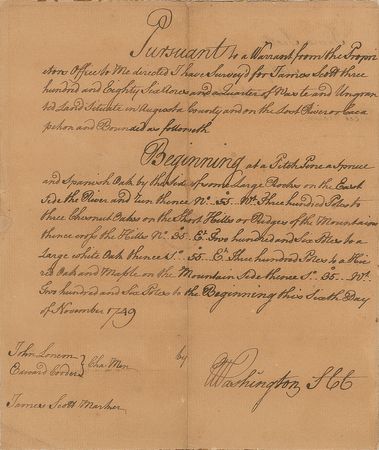 Pursuant to a Warrant from the Proprie
tors Office to Me directed I have Survey'd for James Scott three
hundred and Eighty Six Acres and a Quarter of Waste and Ungran
ted Land Situate in Augusta County and on the Lost River or Caca
pehon and Bounded as followeth
Beginning at a Pitch Pine a Spruce
and Spanish Oak by the Side of some Large Rocks on the East
Side the River and run thence No. 55. Wt. Three hundred Poles to
three Chesnut Oakes on the Short Hills or Ridges of the Mountains
thence the Hills No. 35. Et. Two hundred and Six Poles to a
Large white Oak thence So. 55. Et. Three hundred Poles to a
Oak and Maple on the Mountain Side thence So. 35. Wt.
Two hundred and Six Poles to the Beginning this Sixth Day
of November 1749
John Loncom
Edward Corder } Cha. Men
by
Washington S C C
James Scott Marker